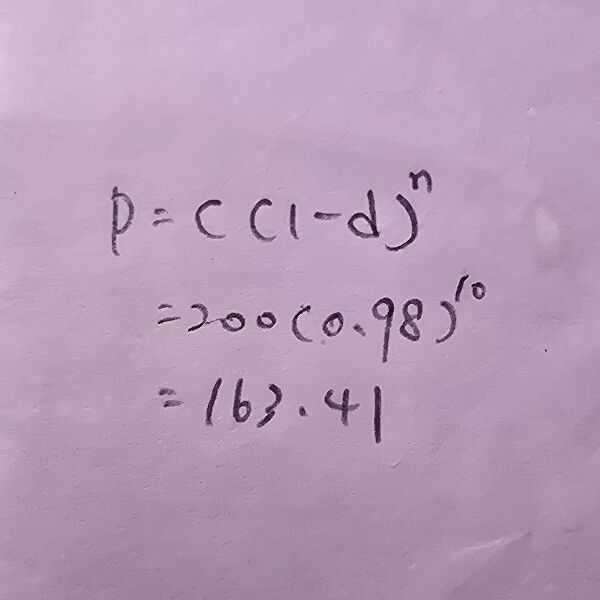 p = C (1-d)^n
= 200 (0.98)^10
= 163.41